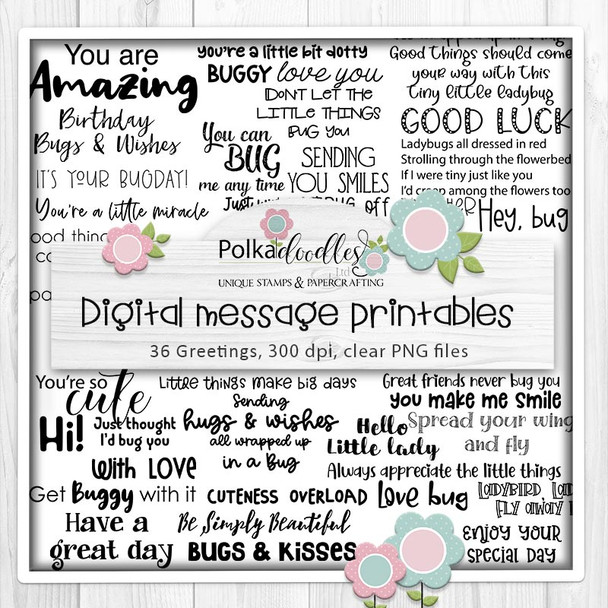 You are
Amazing
Birthday
Bugs & Wishes
IT'S YOUR BUGDAY!
You're a little miracle
ood thing
you're a little bit dotty
BUGGY love you
DON'T LET THE
LITTLE THINGS
BUG YOU
You can
BUG
me any time
SENDING
YOU SMILES
off
Good things should come
your way with this
tiny little ladybug
GOOD LUCK
Ladybugs all dressed in red
Strolling through the flowerbed
If I were tiny just like you
I'd creep among the flowers too
Hey, bug
Polkadoodles
Ltd
UNIQUE STAMPS & PAPERCRAFTING
Digital message printables
36 Greetings, 300 dpi, clear PNG files
You're so
cute
Hi!
Just thought
I'd bug you
with LOVE
Get Buggy with it
Have a
great day
Little things make big days
Sending
hugs & wishes
all wrapped up
in a Bug
CUTENESS OVERLOAD
Be Simply Beautiful
BUGS & KISSES
Great friends never bug you
you make me smile
Hello
Little lady
Spread your wing
and fly
Always appreciate the little things
love bug
LADYBIRD, LAD
FLY AWAY
enjoy your
special day